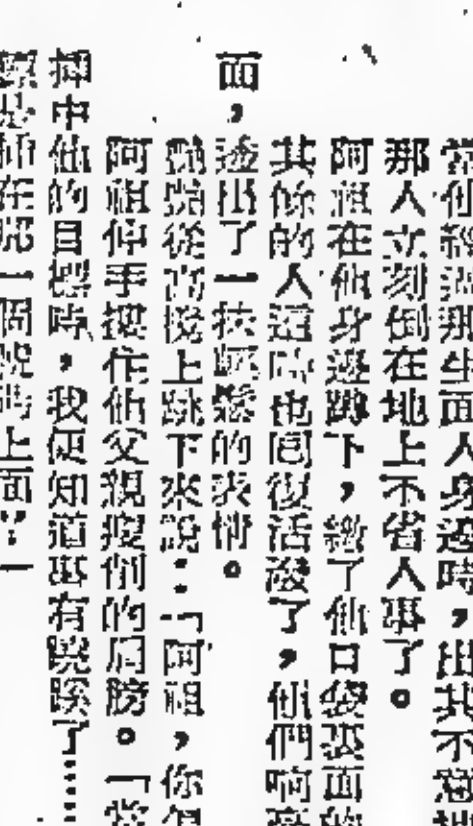 當他經過那生面人身邊時，出其不意地
那人立刻倒在地上不省人事了。
阿祖在他身邊蹲下，繳了他口袋裏面的
其餘的人這時也回復活潑了，他們响
面，透出了一抹輕鬆的表情。
從高櫈上跳下來說：「阿祖，你
阿祖伸手搭作他父親瘦削的肩膀。「當
擲中他的目標時，我便知道事有蹺蹊了……
是插在那一個號碼上面？—